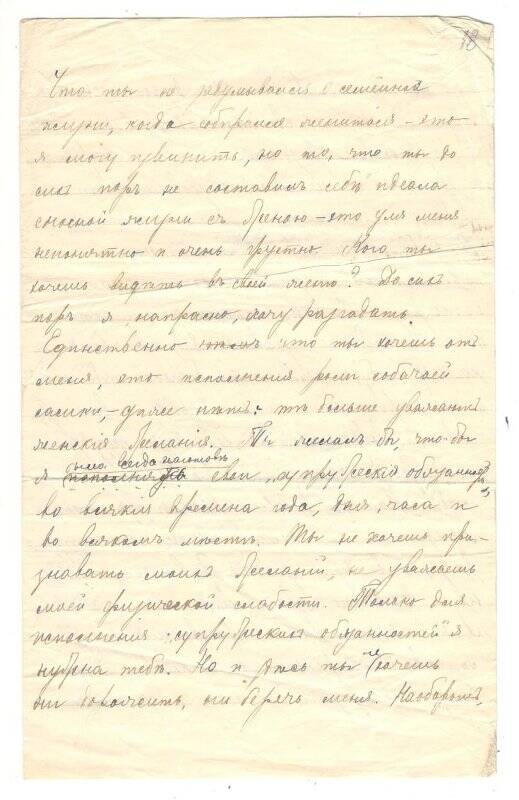 18
Что ты не задумывался о семейной
жизни, когда собирался жениться – это
я могу извинить, но то, что ты до
сихъ поръ не составилъ себѣ идеала
сносной жизни съ женою – это для меня
непонятно и очень грустно. Кого ты
хочешь видѣть въ своей женѣ? До сихъ
поръ я напрасно хочу разгадать.
Единственно что ты хочешь отъ
меня, это исполненія роли собачей
самки, – даже нѣтъ: тѣ больше уважаютъ
женскія желанія. Ты желалъ бы, что-бы
я была всегда готова исполнять свои „супружескія обязанности"
во всякія времена года, дня, часа и
во всякомъ мѣстѣ. Ты не хочешь при-
знавать моихъ желаній, не уважаешь
моей физической слабости. Только для
исполненія „супружескихъ обязанностей" я
нужна тебѣ. Но и здѣсь ты не хочешь
ни
ни беречь меня. Наоборотъ,